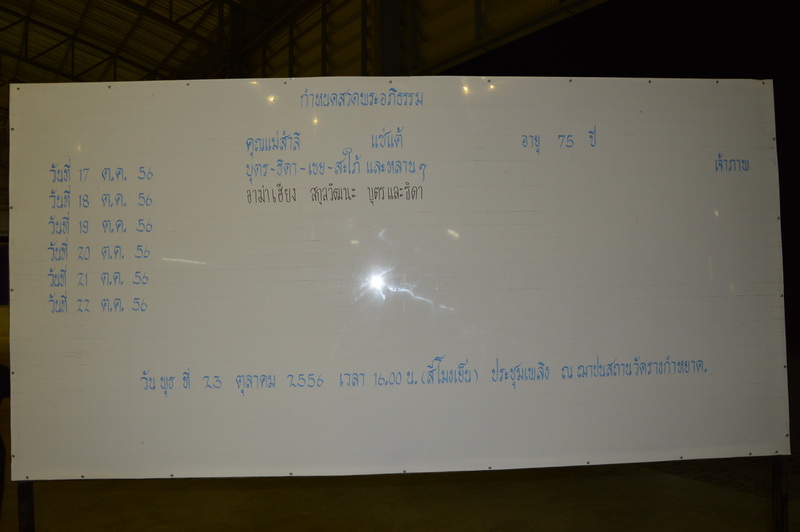 กำหนดสวดพระอภิธรรม
คุณแม่สำลี แซ่แต้ อายุ 75 ปี
วันที่ 17 ต.ค. 56 บุตร-ธิดา-เขย-สะใภ้ และหลานๆ เจ้าภาพ
วันที่ 18 ต.ค. 56 อาม่าเฮียง สกุลวัฒนะ บุตรและธิดา
วันที่ 19 ต.ค. 56
วันที่ 20 ต.ค. 56
วันที่ 21 ต.ค. 56
วันที่ 22 ต.ค. 56
วัน พุธ ที่ 23 ตุลาคม 2556 เวลา 16.00 น. (สี่โมงเย็น) ประชุมเพลิง ณ ฌาปนสถานวัดรางกำหยาด.